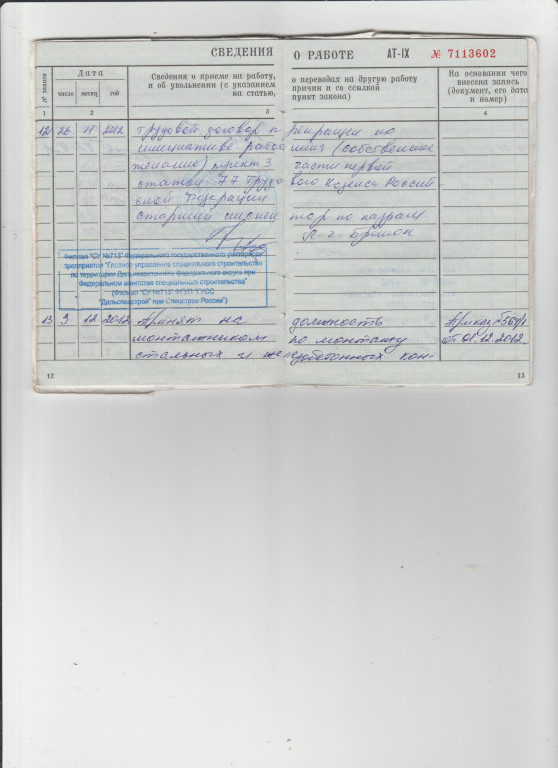 СВЕДЕНИЯ О РАБОТЕ АТ-IX № 7113602
№ записи
Дата
число месяц год
Сведения о приеме на работу, о переводах на другую работу
и об увольнении (с указанием причин и со ссылкой
на статью, пункт закона)
На основании чего
внесена запись
(документ, его дата
и номер)
1 2 3 4
12 26 11 2012 Трудовой договор прекращен по
инициативе работника (собственное
желание) пункт 3 части первой
статьи 77 Трудового Кодекса Россий-
ской Федерации
Старший инспектор по кадрам
Филиал "СУ №713" Федерального государственного унитарного
предприятия "Главное управление специального строительства
по территории Дальневосточного федерального округа при
Федеральном агентстве специального строительства"
(Филиал "СУ №713" ФГУП "ГУСС
"Дальспецстрой" при Спецстрое России")
13 3 12 2012 Принят на должность Приказ
монтажником по монтажу от 01.12.2012
стальных и железобетонных кон-
12 13